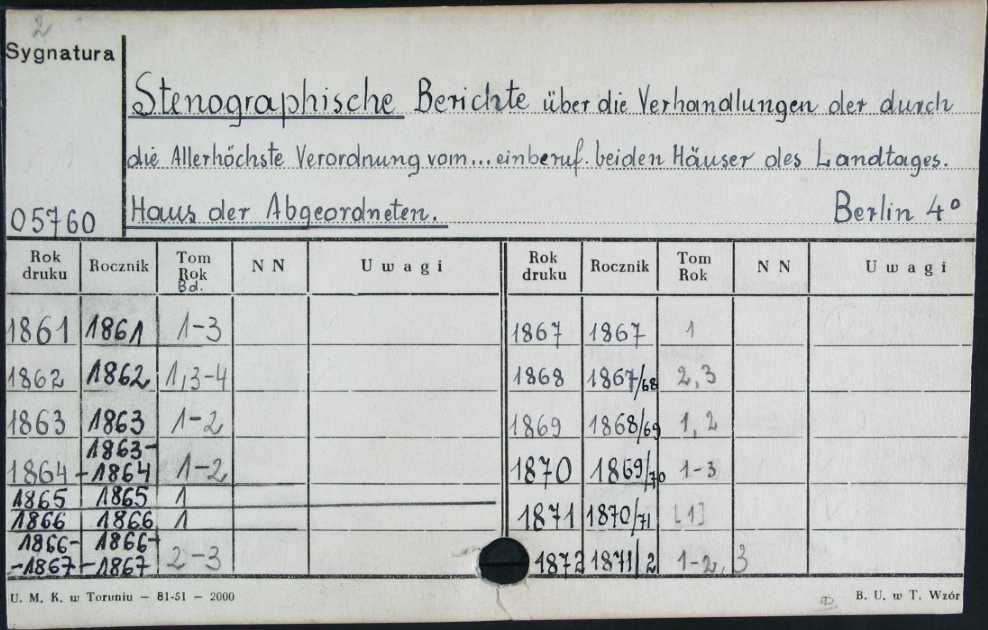 2
Sygnatura
Stenographische Berichte über die Verhandlungen der durch
die Allerhöchste Verordnung vom... einberuf. beiden Häuser des Landtages.
05760 Haus der Abgeordneten. Berlin 4°
Rok druku Rocznik Tom Rok Bd. N N Uwagi Rok druku Rocznik Tom Rok N N Uwagi
1861 1861 1-3 1867 1867 1
1862 1862 1,3-4 1868 1867/68 2,3
1863 1863 1-2 1869 1868/69 1,2
1864 1863-1864 1-2 1870 1869/70 1-3
1865 1865 1
1866 1866 1 1871 1870/71 [1]
1866-1867 1866-1867 2-3 1872 1871/2 1-2,3
U. M. K. w Toruniu — 81-51 — 2000 B. U. w T. Wzór